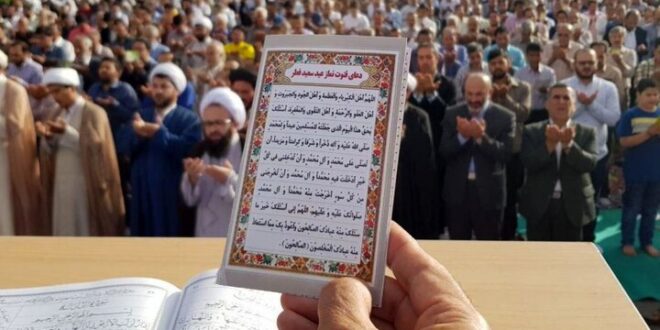 دعای قنوت نماز عید سعید فطر
اَللّهُمَّ اَهْلَ الْكِبْرِياءِ وَالْعَظَمَةِ وَ اَهْلَ الْجُودِ وَالْجَبَرُوتِ وَ
اَهْلَ الْعَفْوِ وَالرَّحْمَةِ وَ اَهْلَ التَّقْوى وَالْمَغْفِرَةِ، اَسْئَلُكَ
بِحَقِّ هذَا الْيَومِ الَّذي جَعَلْتَهُ لِلْمُسْلِمينَ عيداً وَ لِمُحَمَّدٍ
صَلَّى اللهُ عَلَيْهِ وَ آلِهِ ذُخْراً وَ شَرَفاً وَ كَرامَةً وَ مَزيداً اَنْ
تُصَلِّيَ عَلى مُحَمَّدٍ وَ آلِ مُحَمَّدٍ وَ اَنْ تُدْخِلَني في كُلِّ
خَيْرٍ اَدْخَلْتَ فيهِ مُحَمَّداً وَ آلَ مُحَمَّدٍ وَ اَنْ تُخْرِجَني
مِنْ كُلِّ سُوءٍ اَخْرَجْتَ مِنْهُ مُحَمَّداً وَ آلَ مُحَمَّدٍ،
صَلَواتُكَ عَلَيْهِ وَ عَلَيْهِمْ، اَللّهُمَّ اِنّي اَسْئَلُكَ خَيْرَ ما
سَئَلَكَ مِنْهُ عِبادُكَ الصّالِحُونَ وَ اَعُوذُ بِكَ مِمَّا اسْتَعاذَ
مِنْهُ عِبادُكَ الْمُخْلِصُونَ (الصّالِحُونَ).